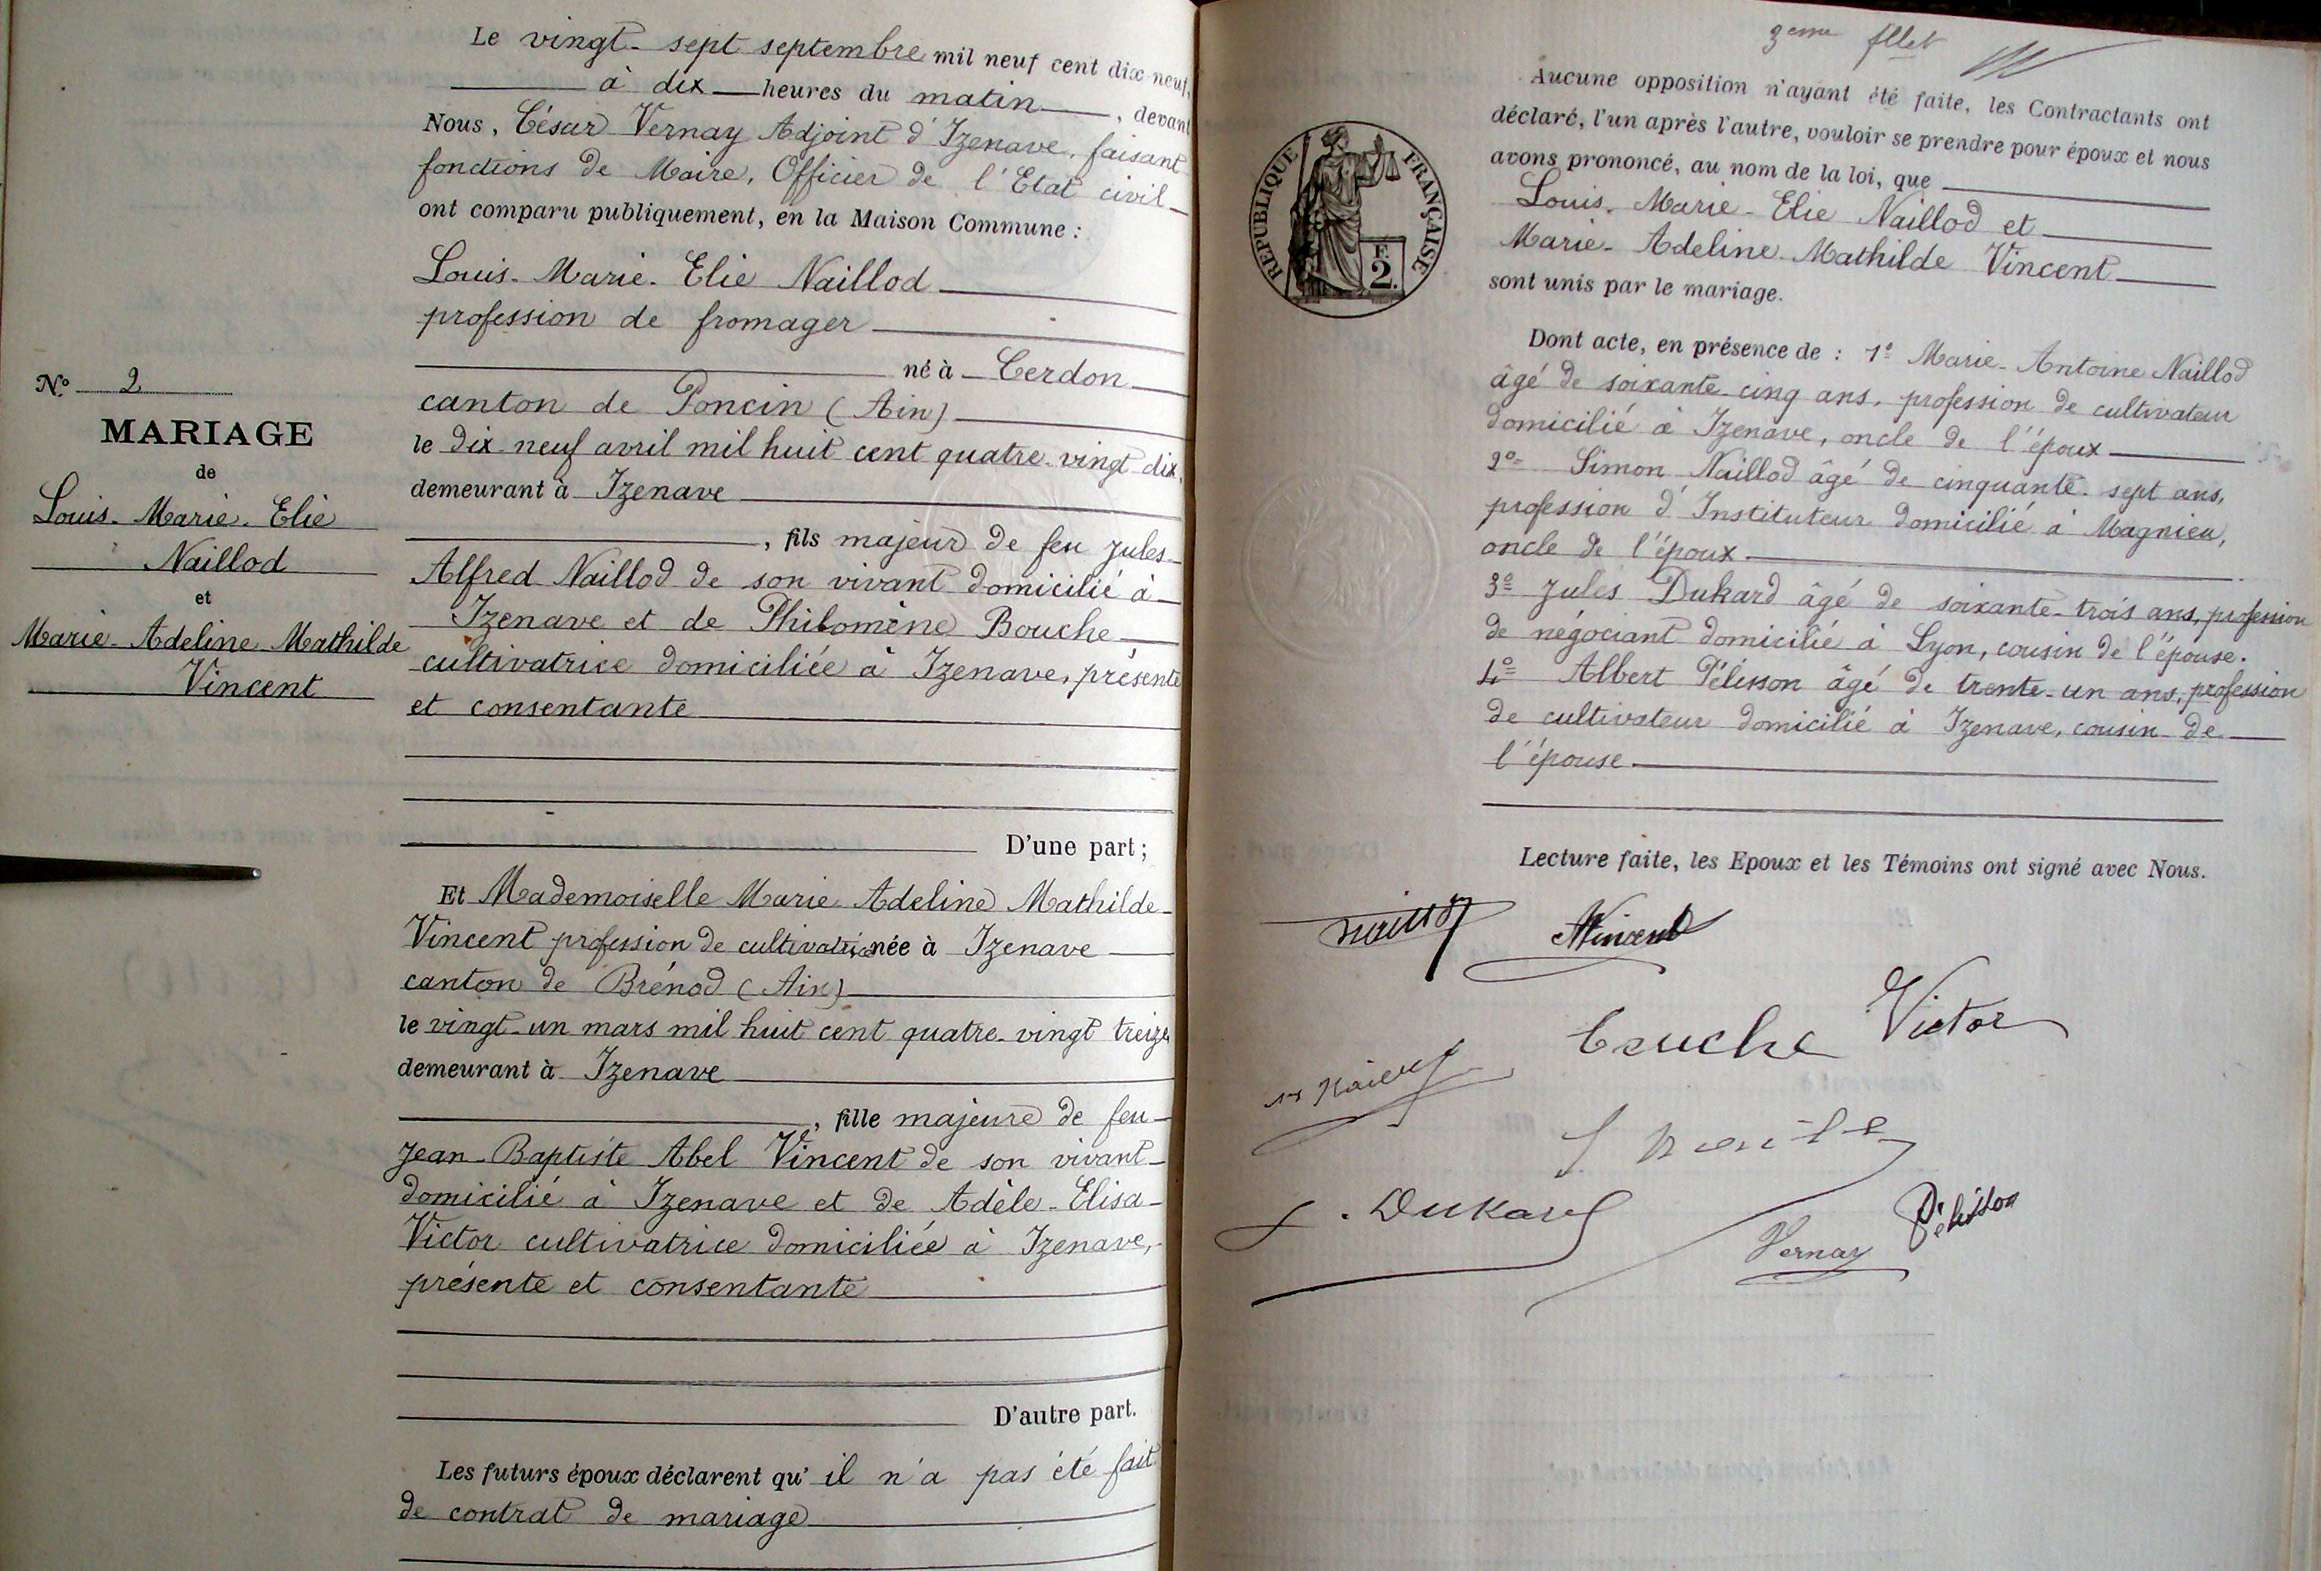 Le vingt-sept septembre mil neuf cent dix-neuf,
à dix heures du matin, devant
Nous, César Vernay Adjoint d'Izenave, faisant
fonctions de Maire, Officier de l'Etat civil
ont comparu publiquement, en la Maison Commune :
Louis-Marie-Elie Naillod
profession de fromager
né à Cerdon
canton de Poncin (Ain)
le dix-neuf avril mil huit cent quatre-vingt-dix,
demeurant à Izenave
, fils majeur de feu Jules-
Alfred Naillod de son vivant domicilié à
Izenave et de Philomène Bouche
cultivatrice domiciliée à Izenave, présente
et consentante
D'une part ;
Et Mademoiselle Marie-Adeline Mathilde
Vincent profession de cultivatrice née à Izenave
canton de Brénod (Ain)
le vingt-un mars mil huit cent quatre-vingt treize
demeurant à Izenave
, fille majeure de feu
Jean-Baptiste Abel Vincent de son vivant
domicilié à Izenave et de Adèle-Elisa
Victor cultivatrice domiciliée à Izenave,
présente et consentante
D'autre part.
Les futurs époux déclarent qu'il n'a pas été fait
de contrat de mariage
No. 2
MARIAGE
de
Louis-Marie-Elie
Naillod
et
Marie-Adeline Mathilde
Vincent
Aucune opposition n'ayant été faite, les Contractants ont
déclaré, l'un après l'autre, vouloir se prendre pour époux et nous
avons prononcé, au nom de la loi, que
Louis-Marie-Elie Naillod et
Marie-Adeline-Mathilde Vincent
sont unis par le mariage.
Dont acte, en présence de : 1º Marie-Antoine Naillod
âgé de soixante-cinq ans, profession de cultivateur
domicilié à Izenave, oncle de l'époux
2º Simon Naillod âgé de cinquante-sept ans,
profession d'Instituteur domicilié à Magnieu,
oncle de l'époux
3º Jules Dukard âgé de soixante-trois ans, profession
de négociant domicilié à Lyon, cousin de l'épouse.
4º Albert Pélisson âgé de trente-un ans, profession
de cultivateur domicilié à Izenave, cousin de
l'épouse
Lecture faite, les Epoux et les Témoins ont signé avec Nous.
REPUBLIQUE FRANÇAISE
F.
2.
Naillod
MVincent
Bouche Victor
J. Dukard
Vernay
Pélisson